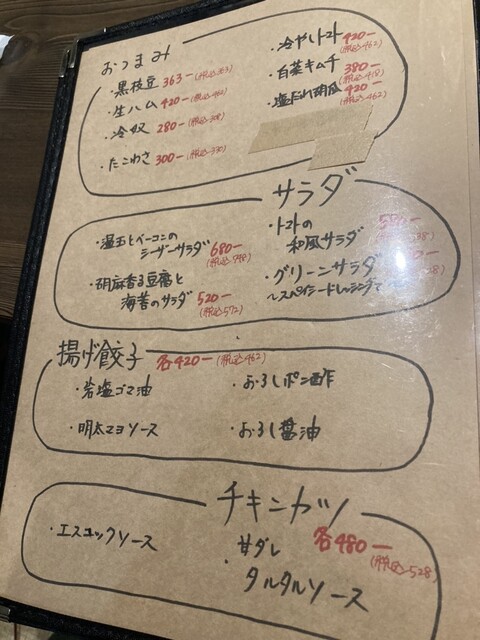 おつまみ
・黒枝豆 363-(税込363)
・生ハム 420-(税込462)
・冷奴 280-(税込308)
・たこわさ 300-(税込330)
・冷やしトマト 420-(税込462)
・白菜キムチ 380-(税込418)
・塩だれ胡瓜 420-(税込462)
サラダ
・温玉とベーコンの
シーザーサラダ 680-
(税込748)
胡麻香る豆腐と
海苔のサラダ 520-
(税込572)
・トマトの
和風サラダ
・グリーンサラダ
〜スパイシードレッシングで
揚げ餃子 各420-(税込462)
・岩塩ゴマ油
・おろしポン酢
・明太マヨソース
・おろし醤油
チキンカツ
各480-
(税込528)
・エスニックソース
・甘ダレ
タルタルソース